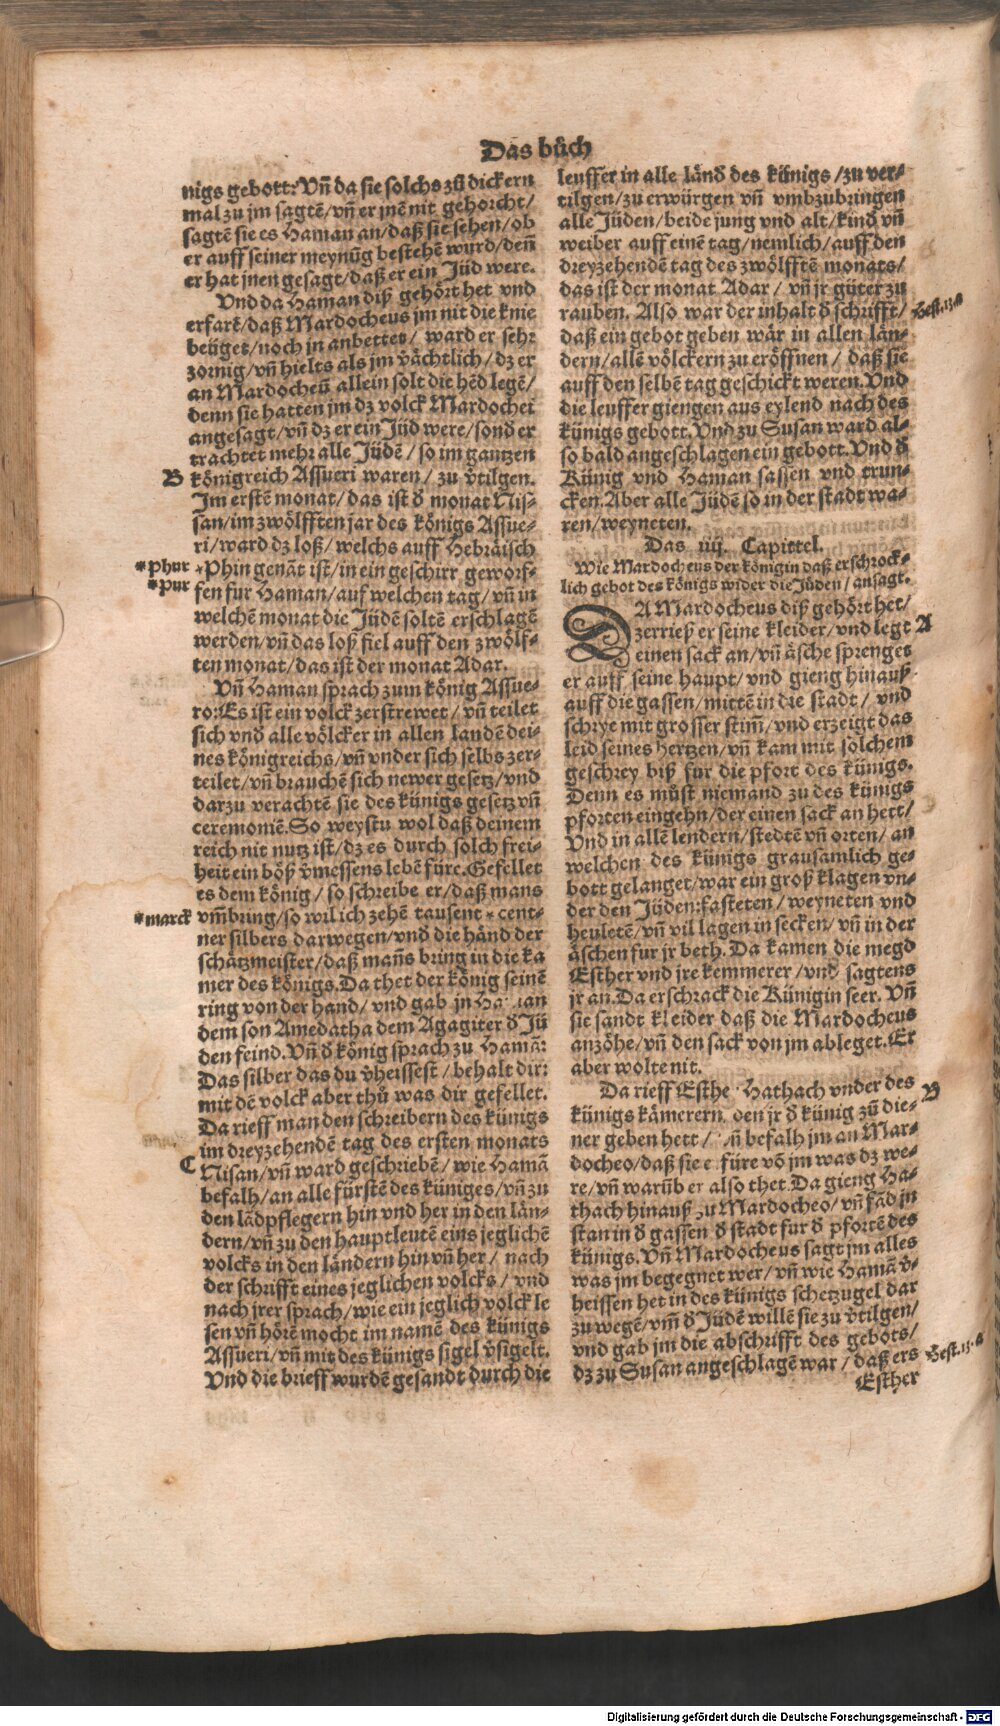 Das bůch
nigs gebott: Vñ da sie solchs zů dickern
mal zu jm sagtē/vñ er jnē nit gehorcht/
sagtē sie es Haman an/daß sie sehen/ob
er auff seiner meynūg bestehē wurd/deñ
er hat jnen gesagt/daß er ein Jüd were.
Vnd da Haman diß gehört het vnd
erfarē/daß Mardocheus jm nit die knie
beüget/noch jn anbettet/ ward er sehr
zornig/vñ hielts als jm v̄ächtlich/dz er
an Mardocheū allein solt die hēd legē/
denn sie hatten jm dz volck Mardochei
angesagt/vñ dz er ein Jüd were/sond er
trachtet mehr alle Jüdē/so im gantzen
B königreich Assueri waren/zu v̄tilgen.
Im erstē monat/das ist d̄ monat Nis-
san/im zwölfften jar des königs Assue-
ri/ward dz loß/welchs auff Hebräisch
*phur *Phin genāt ist/in ein geschirr geworf-
*pur fen fur Haman/auf welchen tag/vñ in
welchē monat die Jüdē soltē erschlagē
werden/vñ das loß fiel auff den zwölf-
ten monat/das ist der monat Adar.
Vñ Haman sprach zum könig Assue-
ro: Es ist ein volck zerstrewet/vñ teilet
sich vnd alle völcker in allen landē dei-
nes königreichs/vñ vnder sich selbs zer-
teilet/vñ brauchē sich newer gesetz/vnd
darzu verachtē sie des künigs gesetz vñ
ceremoniē. So weystu wol daß deinem
reich nit nutz ist/dz es durch solch frei-
heit ein böß v̄messens lebē füre. Gefellet
es dem könig/so schreibe er/daß mans
*marck vm̄bring/so wil ich zehē tausent *cent-
ner silbers darwegen/vnd die händ der
schätzmeister/daß mañs bring in die ka
mer des königs. Da thet der könig seinē
ring von der hand/vnd gab jn Haman
dem son Amedatha dem Agagiter d̄ Jü
den feind. Vñ d̄ könig sprach zu Hamā:
Das silber das du v̄heissest/behalt dir:
mit dē volck aber thů was dir gefellet.
Da rieff man den schreibern des künigs
im dreyzehendē tag des ersten monats
C Nisan/vñ ward geschriebē/wie Hamā
befalh/an alle fürstē des küniges/vñ zu
den lādpflegern hin vnd her in den län-
dern/vñ zu den hauptleutē eins jeglichē
volcks in den ländern hin vñ her/nach
der schrifft eines jeglichen volcks/vnd
nach jrer sprach/wie ein jeglich volck le
sen vñ hörē mocht im namē des künigs
Assueri/vñ mit des künigs sigel v̄sigelt.
Vnd die brieff wurdē gesandt durch die
leuffer in alle länd des künigs/zu ver-
tilgen/zu erwürgen vñ vmbzubringen
alle Jüden/beide jung vnd alt/kind vñ
weiber auff einē tag/nemlich/auff den
dreyzehendē tag des zwölfftē monats/
das ist der monat Adar/vñ jr güter zu
rauben. Also war der inhalt d̄ schrifft/ Hest.13.a
daß ein gebot geben wär in allen län-
dern/allē völckern zu eröffnen/daß sie
auff den selbē tag geschickt weren. Vnd
die leuffer giengen aus eylend nach des
künigs gebott. Vnd zu Susan ward al-
so bald angeschlagen ein gebott. Vnd d̄
Künig vnd Haman sassen vnd trun-
cken. Aber alle Jüdē so in der stadt wa-
ren/weyneten.
Das iiij. Capittel.
Wie Mardocheus der königin daß erschrock-
lich gebot des königs wider die Jüden/ansagt.
DA Mardocheus diß gehört het/
zerrieß er seine kleider/vnd legt A
einen sack an/vñ äsche sprenget
er auff seine haupt/vnd gieng hinauß
auff die gassen/mittē in die stadt/vnd
schrye mit grosser stim̄/vnd erzeigt das
leid seines hertzen/vñ kam mit solchem
geschrey biß fur die pfort des künigs.
Denn es můst niemand zu des künigs
pforten eingehn/der einen sack an hett/
Vnd in allē lendern/stedtē vñ orten/an
welchen des künigs grausamlich ge-
bott gelanget/war ein groß klagen vn-
der den Jüden: fasteten/weyneten vnd
heuletē/vñ vil lagen in secken/vñ in der
äschen fur jr beth. Da kamen die megd
Esther vnd jre kemmerer/vnd sagtens
jr an. Da erschrack die Künigin seer. Vñ
sie sandt kleider daß die Mardocheus
anzöhe/vñ den sack von jm ableget. Er
aber wolte nit.
Da rieff Esthe Hathach vnder des B
künigs kämerern, den jr d̄ künig zů die-
ner geben hett/vñ befalh jm an Mar-
docheo/daß sie e füre vō jm was dz we-
re/vñ warūb er also thet. Da gieng Ha-
thach hinauß zu Mardocheo/vñ fād jn
stan in d̄ gassen d̄ stadt fur d̄ pfortē des
künigs. Vñ Mardocheus sagt jm alles
was jm begegnet wer/vñ wie Hamā v̄-
heissen het in des künigs schetzugel dar
zu wegē/vm̄ d̄ Jüdē willē sie zu v̄tilgen/
vnd gab jm die abschrifft des gebots/
dz zu Susan angeschlagē war/daß ers Hest.13.a
Esther
Digitalisierung gefördert durch die Deutsche Forschungsgemeinschaft - DFG